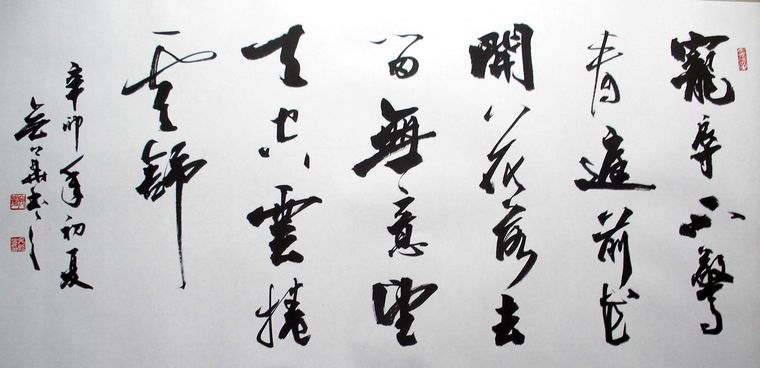 寵辱不驚
看庭前花
開花落去
留無意望
天空雲捲
雲舒
辛卯年初夏
書之